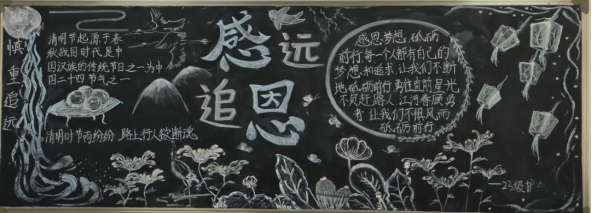 慎重追远
清明节起源于春
秋战国时代是中
国汉族的传统节日之一为中
国二十四节气之一
清明时节雨纷纷 路上行人欲断魂
感远
追恩
感恩梦想 砥砺
前行每一个人都有自己的
梦想和追求 让我们不断
地砥砺前行 勇往直前星光
不负赶路人 江河眷属勇
者 让我们不惧风雨
砥砺前行